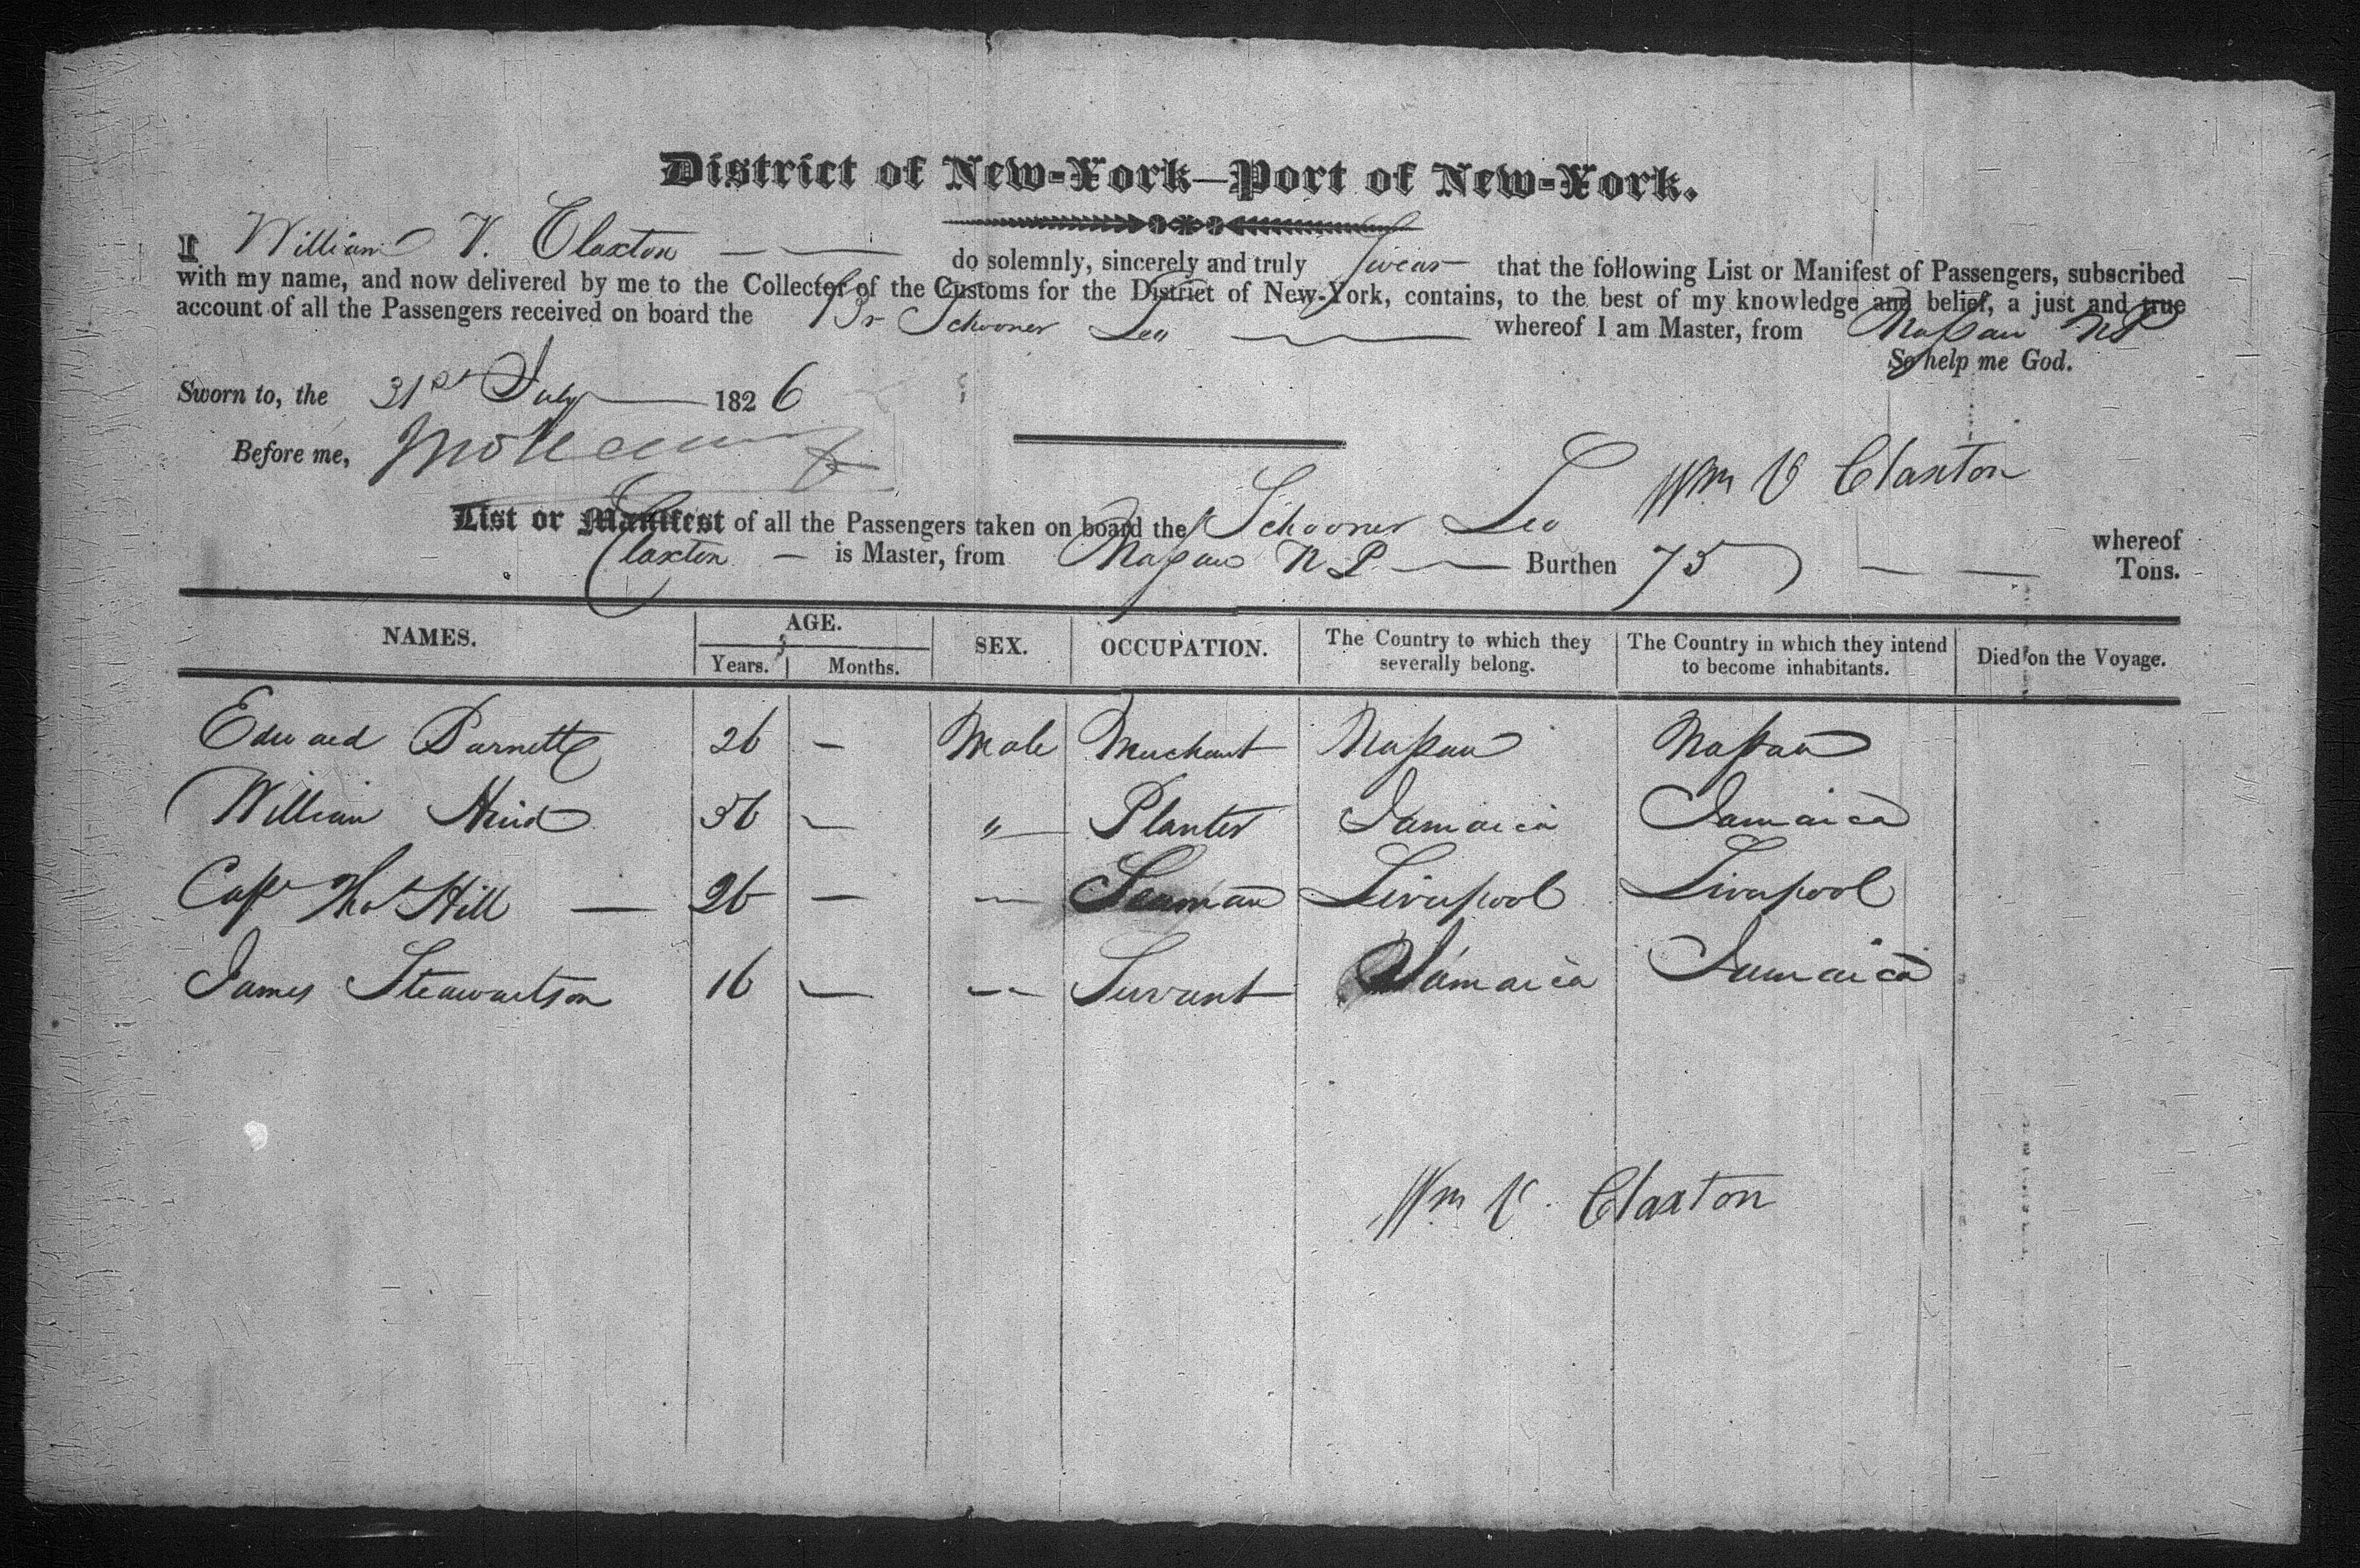 District of New-York—Port of New-York.
I William V. Claxton — — do solemnly, sincerely and truly swear that the following List or Manifest of Passengers, subscribed
with my name, and now delivered by me to the Collector of the Customs for the District of New-York, contains, to the best of my knowledge and belief, a just and true
account of all the Passengers received on board the Br Schooner Leo — whereof I am Master, from Nassau NP
So help me God.
Sworn to, the 31st July — 1826
Before me,
Wm V Claxton
List or Manifest of all the Passengers taken on board the Schooner Leo whereof
Claxton — is Master, from Nassau N P — Burthen 75 — — Tons.
NAMES. AGE. SEX. OCCUPATION. The Country to which they severally belong. The Country in which they intend to become inhabitants. Died on the Voyage.
Years. Months.
Edward 26 — Male Merchant Nassau Nassau
William 36 — " Planter Jamaica Jamaica
Capt Thos Hill — 26 — — Seaman Liverpool Liverpool
James Steawartson 16 — — Servant Jamaica Jamaica
Wm V. Claxton